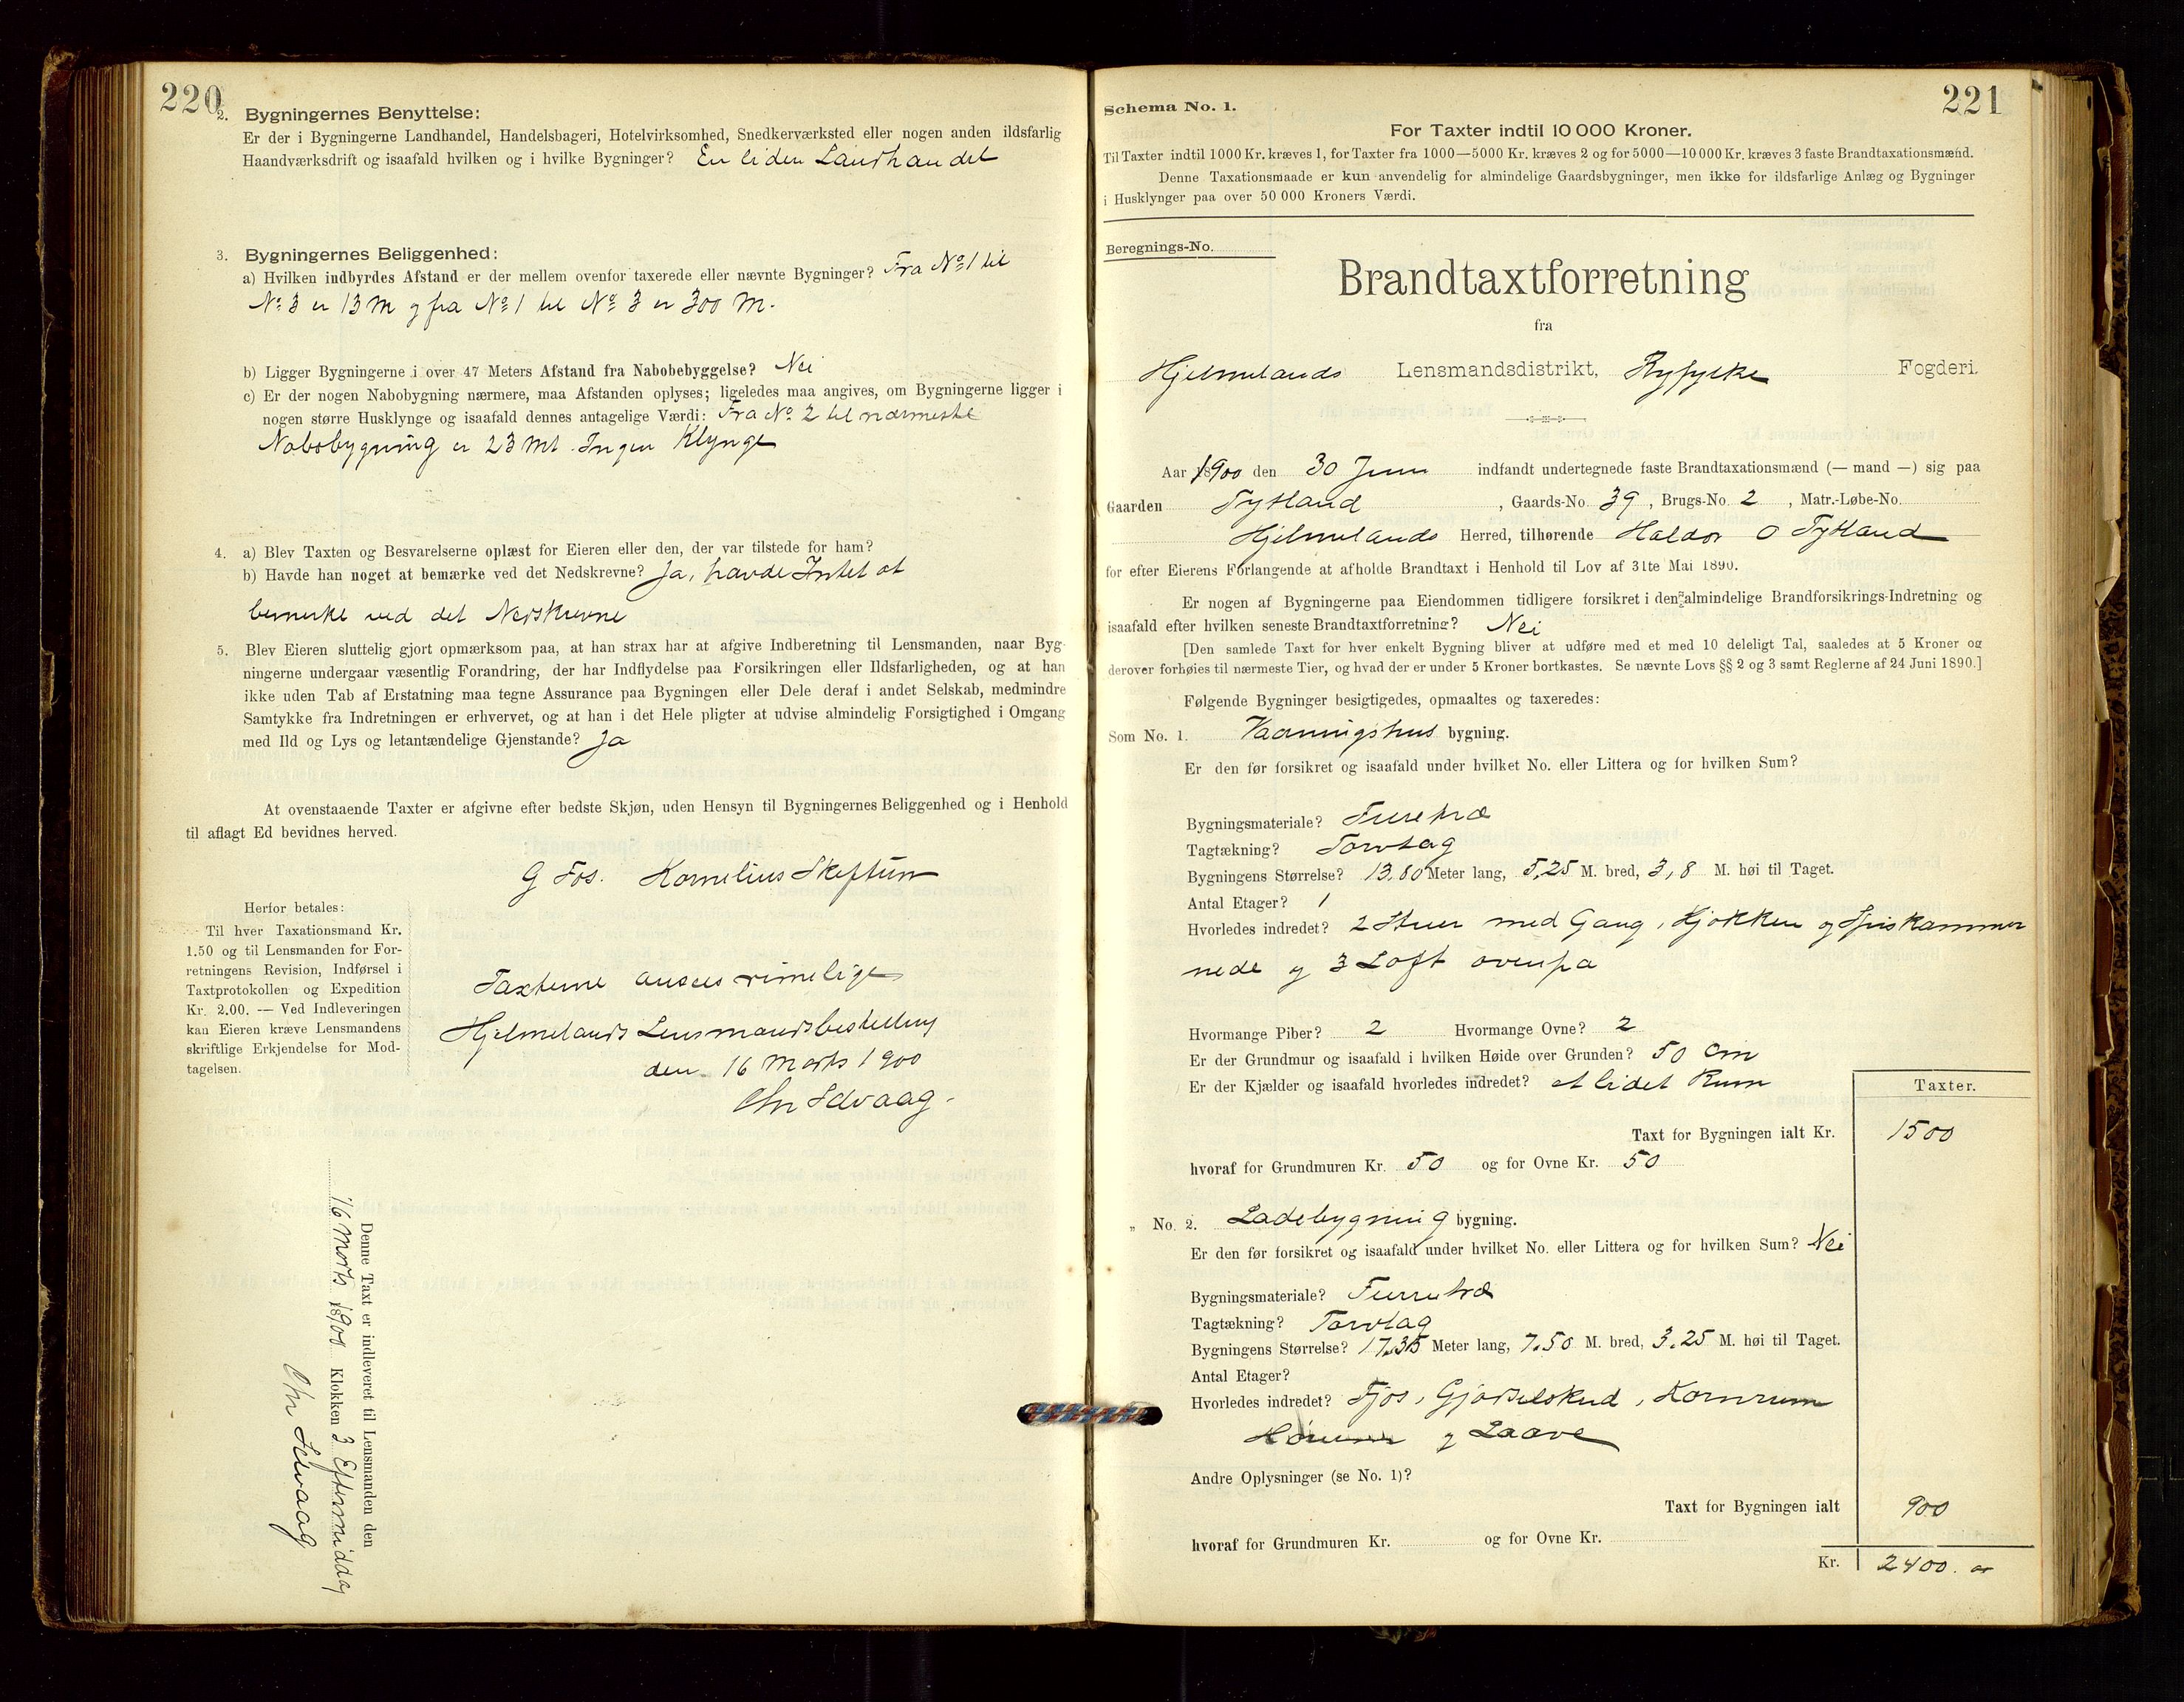 220
2. Bygningernes Benyttelse:
Er der i Bygningerne Landhandel, Handelsbageri, Hotelvirksomhed, Snedkerværksted eller nogen anden ildsfarlig
Haandværksdrift og isaafald hvilken og i hvilke Bygninger? En liden Landhandel
3. Bygningernes Beliggenhed:
a) Hvilken indbyrdes Afstand er der mellem ovenfor taxerede eller nævnte Bygninger? Fra No 1 til
No 3 er 13 M og fra No 1 til No 3 er 300 M.
b) Ligger Bygningerne i over 47 Meters Afstand fra Nabobebyggelse? Nei
c) Er der nogen Nabobygning nærmere, maa Afstanden oplyses; ligeledes maa angives, om Bygningerne ligger i
nogen større Husklynge og isaafald dennes antagelige Værdi: Fra No 2 til nærmeste
Nabobygning er 23 Mt. Ingen Klynge
4. a) Blev Taxten og Besvarelserne oplæst for Eieren eller den, der var tilstede for ham?
b) Havde han noget at bemærke ved det Nedskrevne? Ja, havde Intet at
bemerke ved det Nedskrevne
5. Blev Eieren sluttelig gjort opmærksom paa, at han strax har at afgive Indberetning til Lensmanden, naar Byg-
ningerne undergaar væsentlig Forandring, der har Indflydelse paa Forsikringen eller Ildsfarligheden, og at han
ikke uden Tab af Erstatning maa tegne Assurance paa Bygningen eller Dele deraf i andet Selskab, medmindre
Samtykke fra Indretningen er erhvervet, og at han i det Hele pligter at udvise almindelig Forsigtighed i Omgang
med Ild og Lys og letantændelige Gjenstande? Ja
At ovenstaaende Taxter er afgivne efter bedste Skjøn, uden Hensyn til Bygningernes Beliggenhed og i Henhold
til aflagt Ed bevidnes herved.
G Fos. Kornelius Skeftun
Herfor betales:
Til hver Taxationsmand Kr.
1.50 og til Lensmanden for For-
retningens Revision, Indførsel i
Taxtprotokollen og Expedition
Kr. 2.00. — Ved Indleveringen
kan Eieren kræve Lensmandens
skriftlige Erkjendelse for Mod-
tagelsen.
Taxterne ansees rimelige
Hjelmelands Lensmandsbestilling
den 16 Marts 1900
Chr Selvaag.
Denne Taxt er indleveret til Lensmanden den
16 Marts 1900 Klokken 3 Eftermiddag
Chr Selvaag
221
Schema No. 1.
For Taxter indtil 10 000 Kroner.
Til Taxter indtil 1000 Kr. kræves 1, for Taxter fra 1000—5000 Kr. kræves 2 og for 5000—10 000 Kr. kræves 3 faste Brandtaxationsmænd.
Denne Taxationsmaade er kun anvendelig for almindelige Gaardsbygninger, men ikke for ildsfarlige Anlæg og Bygninger
i Husklynger paa over 50 000 Kroners Værdi.
Beregnings-No.
Brandtaxtforretning
fra
Hjelmelands Lensmandsdistrikt, Ryfylke Fogderi.
Aar 1900 den 30 Juni indfandt undertegnede faste Brandtaxationsmænd (— mand —) sig paa
Gaarden Tytland, Gaards-No. 39, Brugs-No. 2, Matr.-Løbe-No.
Hjelmelands Herred, tilhørende Haldor O Tytland
for efter Eierens Forlangende at afholde Brandtaxt i Henhold til Lov af 31te Mai 1890.
Er nogen af Bygningerne paa Eiendommen tidligere forsikret i den almindelige Brandforsikrings-Indretning og
isaafald efter hvilken seneste Brandtaxtforretning? Nei
[Den samlede Taxt for hver enkelt Bygning bliver at udføre med et med 10 deleligt Tal, saaledes at 5 Kroner og
derover forhøies til nærmeste Tier, og hvad der er under 5 Kroner bortkastes. Se nævnte Lovs §§ 2 og 3 samt Reglerne af 24 Juni 1890.]
Følgende Bygninger besigtigedes, opmaaltes og taxeredes:
Som No. 1. Vaaningshus bygning.
Er den før forsikret og isaafald under hvilket No. eller Littera og for hvilken Sum?
Bygningsmateriale? Furetræ
Tagtækning? Torvtag
Bygningens Størrelse? 13,80 Meter lang, 5,25 M. bred, 3,8 M. høi til Taget.
Antal Etager? 1
Hvorledes indredet? 2 Stuer med Gang, Kjøkken og Spiskammer
nede og 3 Loft ovenpa
Hvormange Piber? 2 Hvormange Ovne? 2
Er der Grundmur og isaafald i hvilken Høide over Grunden? 50 Cm
Er der Kjælder og isaafald hvorledes indredet? et lidet Rum
Taxter.
Taxt for Bygningen ialt Kr. 1500
hvoraf for Grundmuren Kr. 50 og for Ovne Kr. 50
„ No. 2. Ladebygning bygning.
Er den før forsikret og isaafald under hvilket No. eller Littera og for hvilken Sum? Nei
Bygningsmateriale? Furrutræ
Tagtækning? Torvtag
Bygningens Størrelse? 17,35 Meter lang, 7.50 M. bred, 3.25 M. høi til Taget.
Antal Etager?
Hvorledes indredet? Fjøs, Gjødselskud, Kornrum
og Laave
Andre Oplysninger (se No. 1)?
Taxt for Bygningen ialt 900
hvoraf for Grundmuren Kr. og for Ovne Kr.
Kr. 2400.